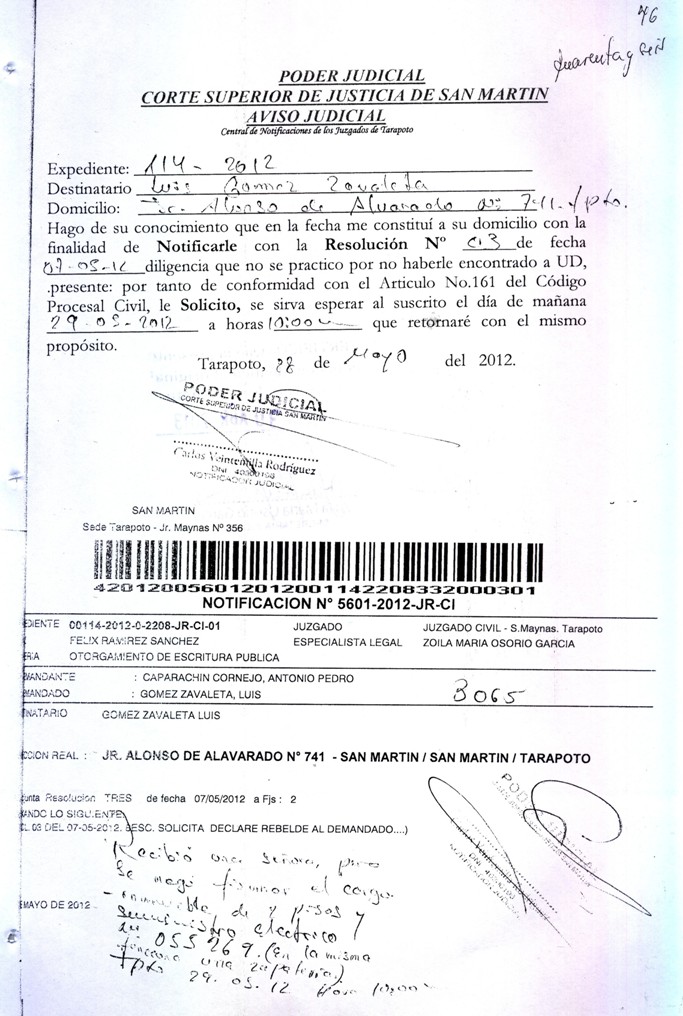 46
Cuarenta y seis
PODER JUDICIAL
CORTE SUPERIOR DE JUSTICIA DE SAN MARTIN
AVISO JUDICIAL
Central de Notificaciones de los Juzgados de Tarapoto
Expediente: 114 - 2012
Destinatario Luis Gomez Zavaleta
Domicilio: Jr. Alonso de Alvarado Nº 741. Tpto.
Hago de su conocimiento que en la fecha me constituí a su domicilio con la
finalidad de Notificarle con la Resolución Nº 03 de fecha
07-05-12 diligencia que no se practico por no haberle encontrado a UD,
.presente: por tanto de conformidad con el Articulo No.161 del Código
Procesal Civil, le Solicito, se sirva esperar al suscrito el día de mañana
29-05-2012 a horas 10:00 que retornaré con el mismo
propósito.
Tarapoto, 28 de Mayo del 2012.
PODER JUDICIAL
CORTE SUPERIOR DE JUSTICIA SAN MARTIN
Carlos Veintemilla Rodríguez
DNI
NOTIFICADOR JUDICIAL
SAN MARTIN
Sede Tarapoto - Jr. Maynas Nº 356
420120056012012001142208332000301
NOTIFICACION N° 5601-2012-JR-CI
DIENTE 00114-2012-0-2208-JR-CI-01 JUZGADO JUZGADO CIVIL - S.Maynas. Tarapoto
FELIX RAMIREZ SANCHEZ ESPECIALISTA LEGAL ZOILA MARIA OSORIO GARCIA
RIA OTORGAMIENTO DE ESCRITURA PUBLICA
MANDANTE : CAPARACHIN CORNEJO, ANTONIO PEDRO
MANDADO : GOMEZ ZAVALETA, LUIS 3065
NATARIO GOMEZ ZAVALETA LUIS
CCION REAL : JR. ALONSO DE ALAVARADO Nº 741 - SAN MARTIN / SAN MARTIN / TARAPOTO
unta Resolucion TRES de fecha 07/05/2012 a Fjs : 2
ANDO LO SIGUIENTE
L 03 DEL 07-05-2012. (ESC. SOLICITA DECLARE REBELDE AL DEMANDADO....)
Recibió una señora, pero
se negó firmar el cargo
- inmueble de 2 pisos y
MAYO DE 2012
suministro electrico
055269. (En la misma
funciona una zapateria.)
Tpto 29.05.12 Hora 10:00